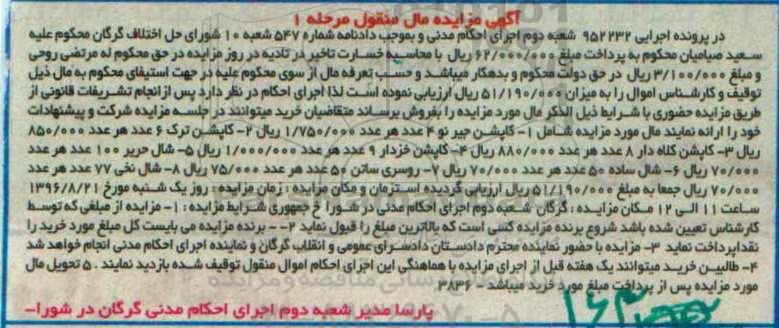 آگهی مزایده مال منقول مرحله 1
در پرونده اجرایی 952232 شعبه دوم اجرای احکام مدنی و بموجب دادنامه شماره 547 شعبه 10 شورای حل اختلاف گرگان محکوم علیه
سعید صیامیان محکوم به پرداخت مبلغ 62/000/000 ریال با محاسبه خسارت تاخیر در تادیه در روز مزایده در حق محکوم له مرتضی روحی
و مبلغ 3/100/000 ریال در حق دولت محکوم و بدهکار میباشد و حسب تعرفه مال از سوی محکوم علیه در جهت استیفای محکوم به مال ذیل
توقیف و کارشناس اموال را به میزان 51/190/000 ریال ارزیابی نموده است لذا اجرای احکام در نظر دارد پس از انجام تشریفات قانونی از
طریق مزایده حضوری با شرایط ذیل الذکر مال مورد مزایده را بفروش برساند متقاضیان خرید میتوانند در جلسه مزایده شرکت و پیشنهادات
خود را ارائه نمایند مال مورد مزایده شامل 1- کاپشن جیر نو 4 عدد هر عدد 1/750/000 ریال 2- کاپشن ترک 6 عدد هر عدد 850/000
ریال 3- کاپشن کلاه دار 8 عدد هر عدد 880/000 ریال 4- کاپشن خزدار 9 عدد هر عدد 1/000/000 ریال 5- شال حریر 100 عدد هر عدد
70/000 ریال 6- شال ساده 50 عدد هر عدد 70/000 ریال 7- روسری ساتن 50 عدد هر عدد 75/000 ریال 8- شال نخی 77 عدد هر عدد
70/000 ریال جمعا به مبلغ 51/190/000 ریال ارزیابی گردیده است زمان و مکان مزایده : زمان مزایده : روز یک شنبه مورخ 1396/8/21
ساعت 11 الی 12 مکان مزایده : گرگان شعبه دوم اجرای احکام مدنی در شورا خ جمهوری شرایط مزایده : 1- مزایده از مبلغی که توسط
کارشناس تعیین شده باشد شروع برنده مزایده کسی است که بالاترین مبلغ را قبول نماید 2- - برنده مزایده می بایست کل مبلغ مورد خرید را
نقدا پرداخت نماید 3- مزایده با حضور نماینده محترم دادستان دادسرای عمومی و انقلاب گرگان و نماینده اجرای احکام مدنی انجام خواهد شد
4- طالبین خرید میتوانند یک هفته قبل از اجرای مزایده با هماهنگی این اجرای احکام اموال منقول توقیف شده بازدید نمایند . 5 تحویل مال
مورد مزایده پس از پرداخت مبلغ مورد خرید میباشد - 3836
پارسا مدیر شعبه دوم اجرای احکام مدنی گرگان در شورا-